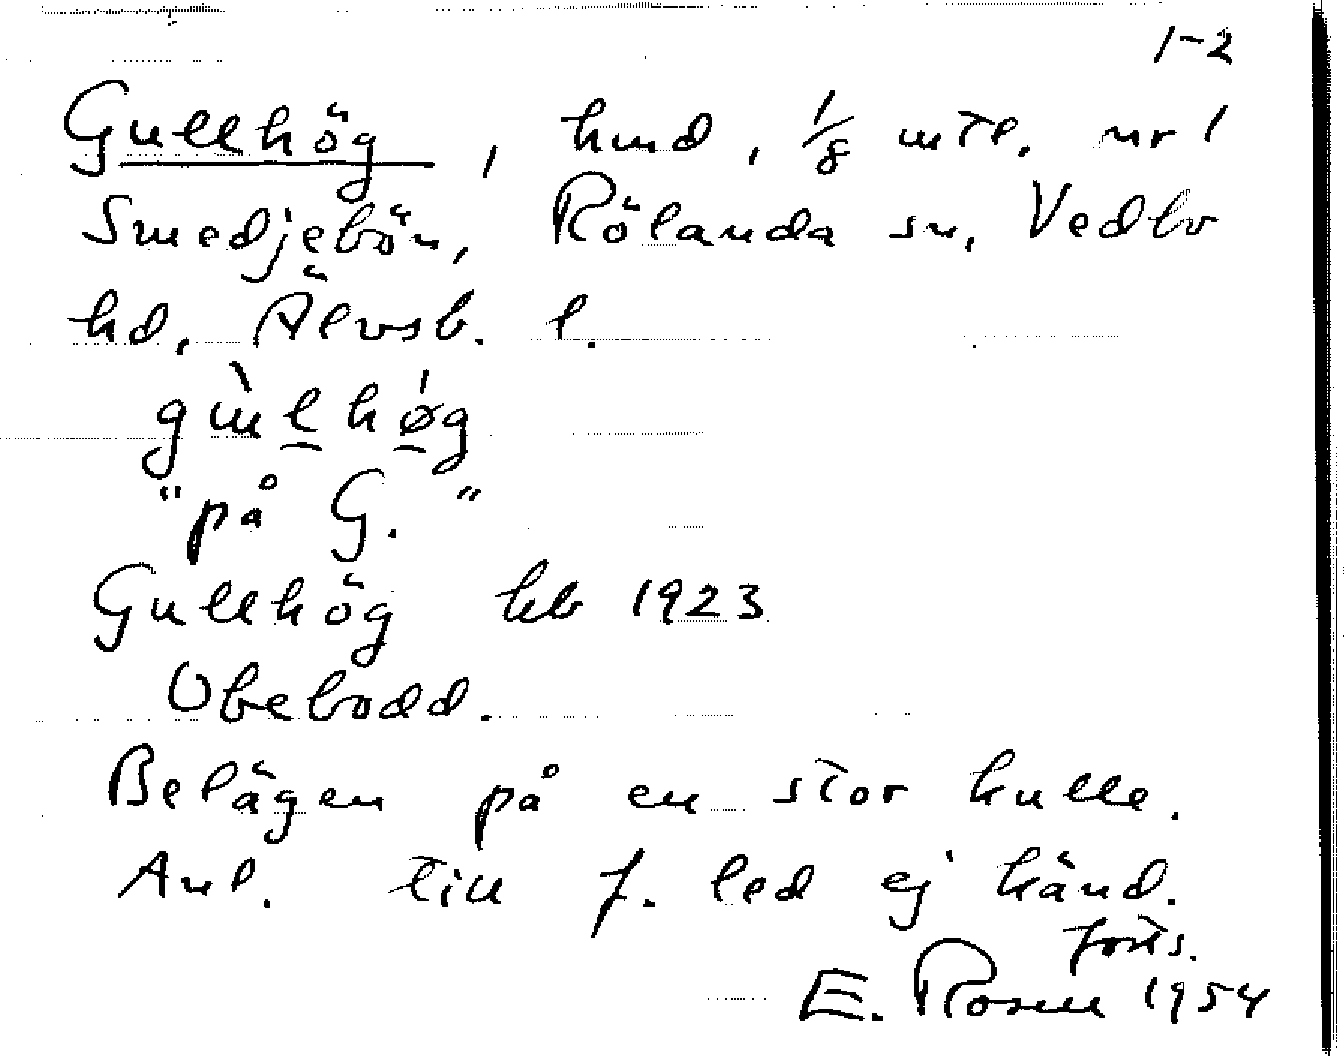 1-2
Gullhög, hmd, 1/8 mtl. nr 1
Smedjebön, Rölanda sn, Vedbo
hd, Älvsb. l.
gùlhǿg
"på G."
Gullhög kb 1923
Obebodd.
Belägen på en stor kulle.
Anl. till f. led ej känd.
forts.
E. Rosell 1954